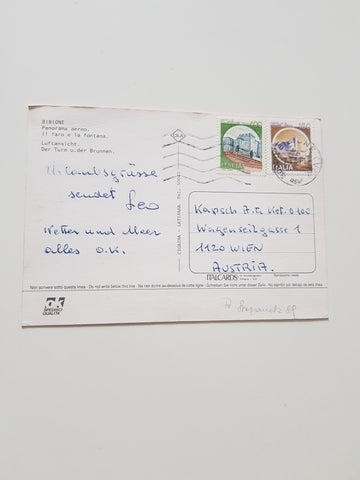 BIBIONE
Panorama aereo.
Il faro e la fontana.
Luftansicht.
Der Turm u.der Brunnen.
Urlaubsgrüsse
sendet Leo
Wetter und Meer
alles o.k.
ITALIA
ITALIA
Kapsch A.G.
Wagenseilgasse 1
1120 WIEN
AUSTRIA.
ITALCARDS
Non scrivere sotto questa linea - Do not write below this line - Ne rien écrire au-dessous de cette ligne - Schreiben Sie nicht unter dieser Zeile - No escribir por debajo de esta línea
SPEDISCI
QUALITÀ